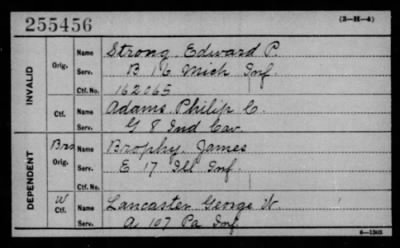 255456 (3-H-4)
INVALID
Orig. Name Strong, Edward P.
Serv. B 16 Mich Inf.
Ctf. No. 162065
Ctf. Name Adams Philip C.
Serv. G 8 Ind Cav.
DEPENDENT
Bro Orig. Name Brophy, James
Serv. E 17 Ill Inf.
Ctf. No.
W Ctf. Name Lancaster George W.
Serv. A 107 Pa Inf.
6-1303